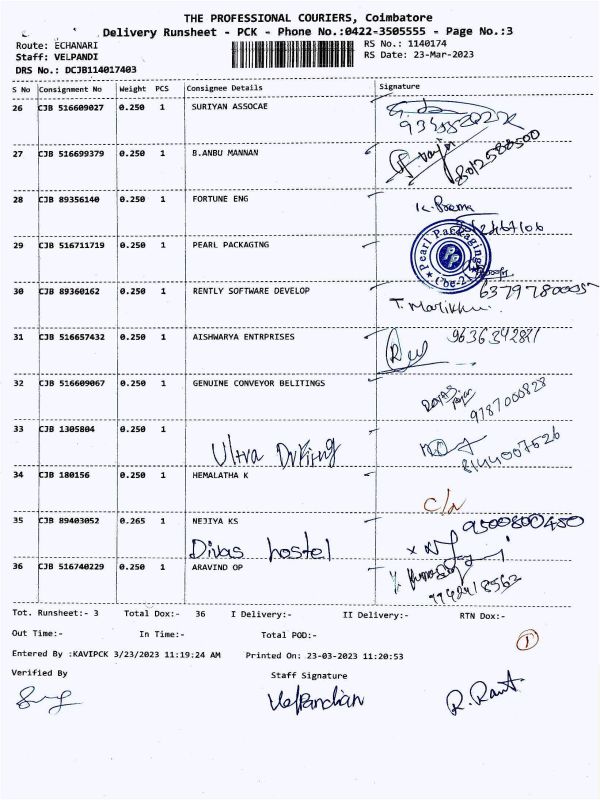 THE PROFESSIONAL COURIERS, Coimbatore
Delivery Runsheet - PCK - Phone No.:0422-3505555 - Page No.:3
Route: ECHANARI
RS No.: 1140174
Staff: VELPANDI
RS Date: 23-Mar-2023
DRS No.: DCJB114017403
S No Consignment No Weight PCS Consignee Details Signature
26 CJB 516609027 0.250 1 SURIYAN ASSOCAE
27 CJB 516699379 0.250 1 B.ANBU MANNAN
8012588500
28 CJB 89356140 0.250 1 FORTUNE ENG
K. Prema
29 CJB 516711719 0.250 1 PEARL PACKAGING
Pearl Packaging
30 CJB 89360162 0.250 1 RENTLY SOFTWARE DEVELOP
31 CJB 516657432 0.250 1 AISHWARYA ENTRPRISES
32 CJB 516609067 0.250 1 GENUINE CONVEYOR BELITINGS
9787000828
33 CJB 1305804 0.250 1
Ultra
8144007526
34 CJB 180156 0.250 1 HEMALATHA K
35 CJB 89403052 0.265 1 NEJIYA KS
9500800450
Divas hostel
36 CJB 516740229 0.250 1 ARAVIND OP
Tot. Runsheet:- 3 Total Dox:- 36 I Delivery:- II Delivery:- RTN Dox:-
Out Time:- In Time:- Total POD:-
1
Entered By :KAVIPCK 3/23/2023 11:19:24 AM Printed On: 23-03-2023 11:20:53
Verified By Staff Signature
VelPandian